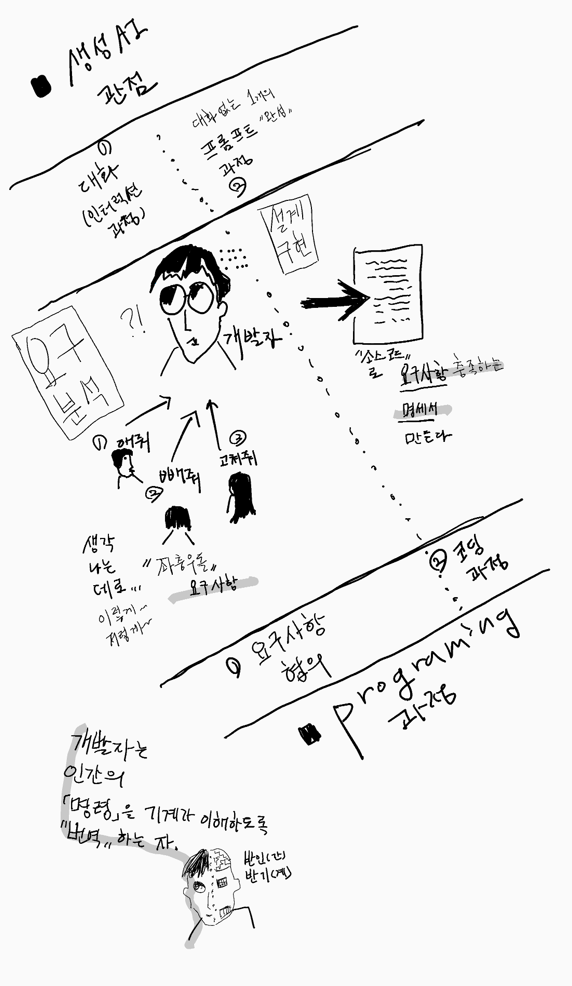 생성AI
관점
①
대화
(인터렉션
과정)
대화없는 1개의
프롬프트 "완성"
과정
②
설계
구현
요구
분석
?!
개발자
"소스코드"
로
요구사항 충족하는
명세서
만든다
① 해줘
② 빼줘
③
고쳐줘
생각
나는
데로...
이렇게~
저렇게~
"좌충우돌"
요구사항
② 코딩
과정
① 요구사항
협의
programing
과정
개발자는
인간의
「명령」을 기계가 이해하도록
"번역" 하는 자.
반인(간)
반기(계)